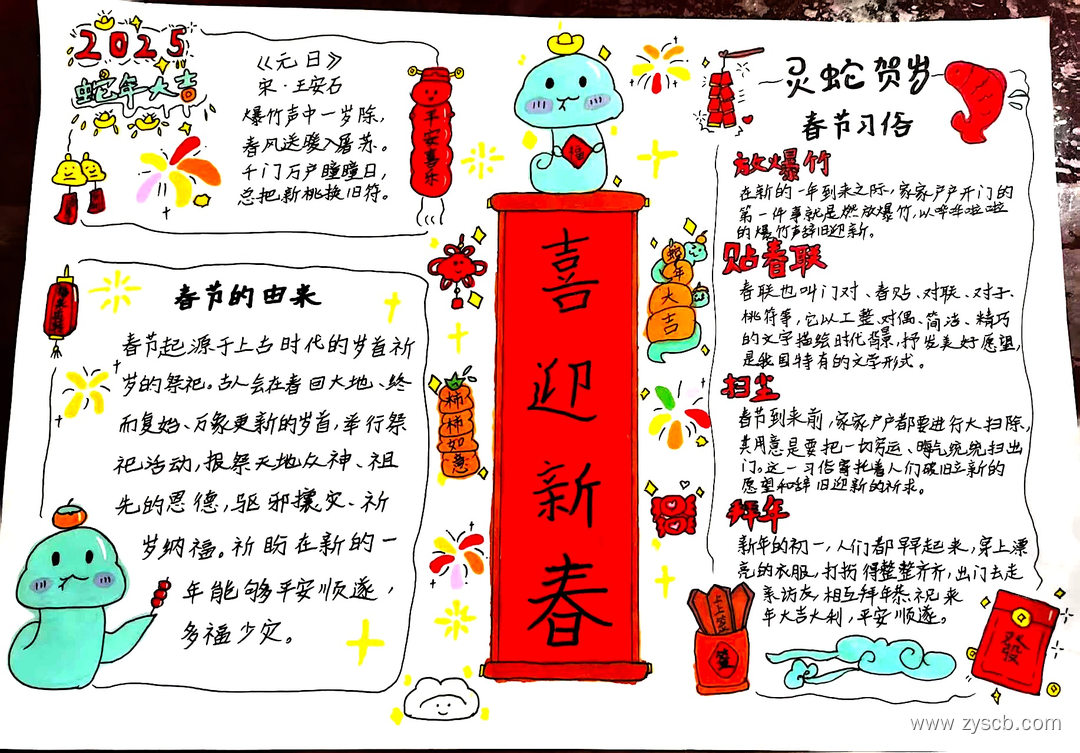 2025
蛇年大吉
《元日》
宋·王安石
爆竹声中一岁除，
春风送暖入屠苏。
千门万户瞳瞳日，
总把新桃换旧符。
平安喜乐
春节的由来
春节起源于上古时代的岁首祈
岁的祭祀。古人会在春回大地、终
而复始、万象更新的岁首，举行祭
祀活动，报祭天地众神、祖
先的恩德，驱邪攘灾、祈
岁纳福。祈盼在新的一
年能够平安顺遂，
多福少灾。
福
喜迎新春
蛇年大吉
柿柿如意
灵蛇贺岁
春节习俗
放爆竹
在新的一年到来之际，家家户户开门的
第一件事就是燃放爆竹，以哔哔啦啦
的爆竹声辞旧迎新。
贴春联
春联也叫门对、春贴、对联、对子、
桃符等，它以工整、对偶、简洁、精巧
的文字描绘时代背景，抒发美好愿望，
是我国特有的文学形式。
扫尘
春节到来前，家家户户都要进行大扫除，
其用意是要把一切穷运、晦气统统扫出
门。这一习俗寄托着人们破旧立新的
愿望和辞旧迎新的祈求。
拜年
新年的初一，人们都早早起来，穿上漂
亮的衣服，打扮得整整齐齐，出门去走
亲访友，相互拜年恭祝来
年大吉大利，平安顺遂。
上上签
签
發
www.zyscb.com